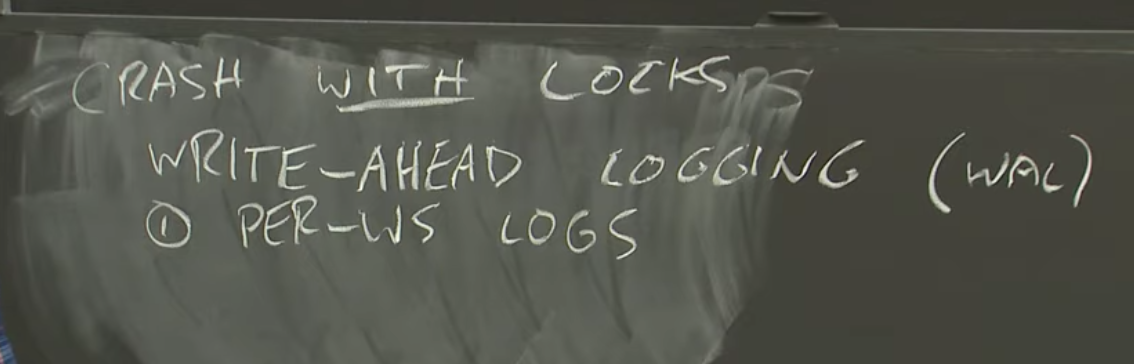 CRASH WITH LOCKS
WRITE-AHEAD LOGGING (WAL)
① PER-WS LOGS